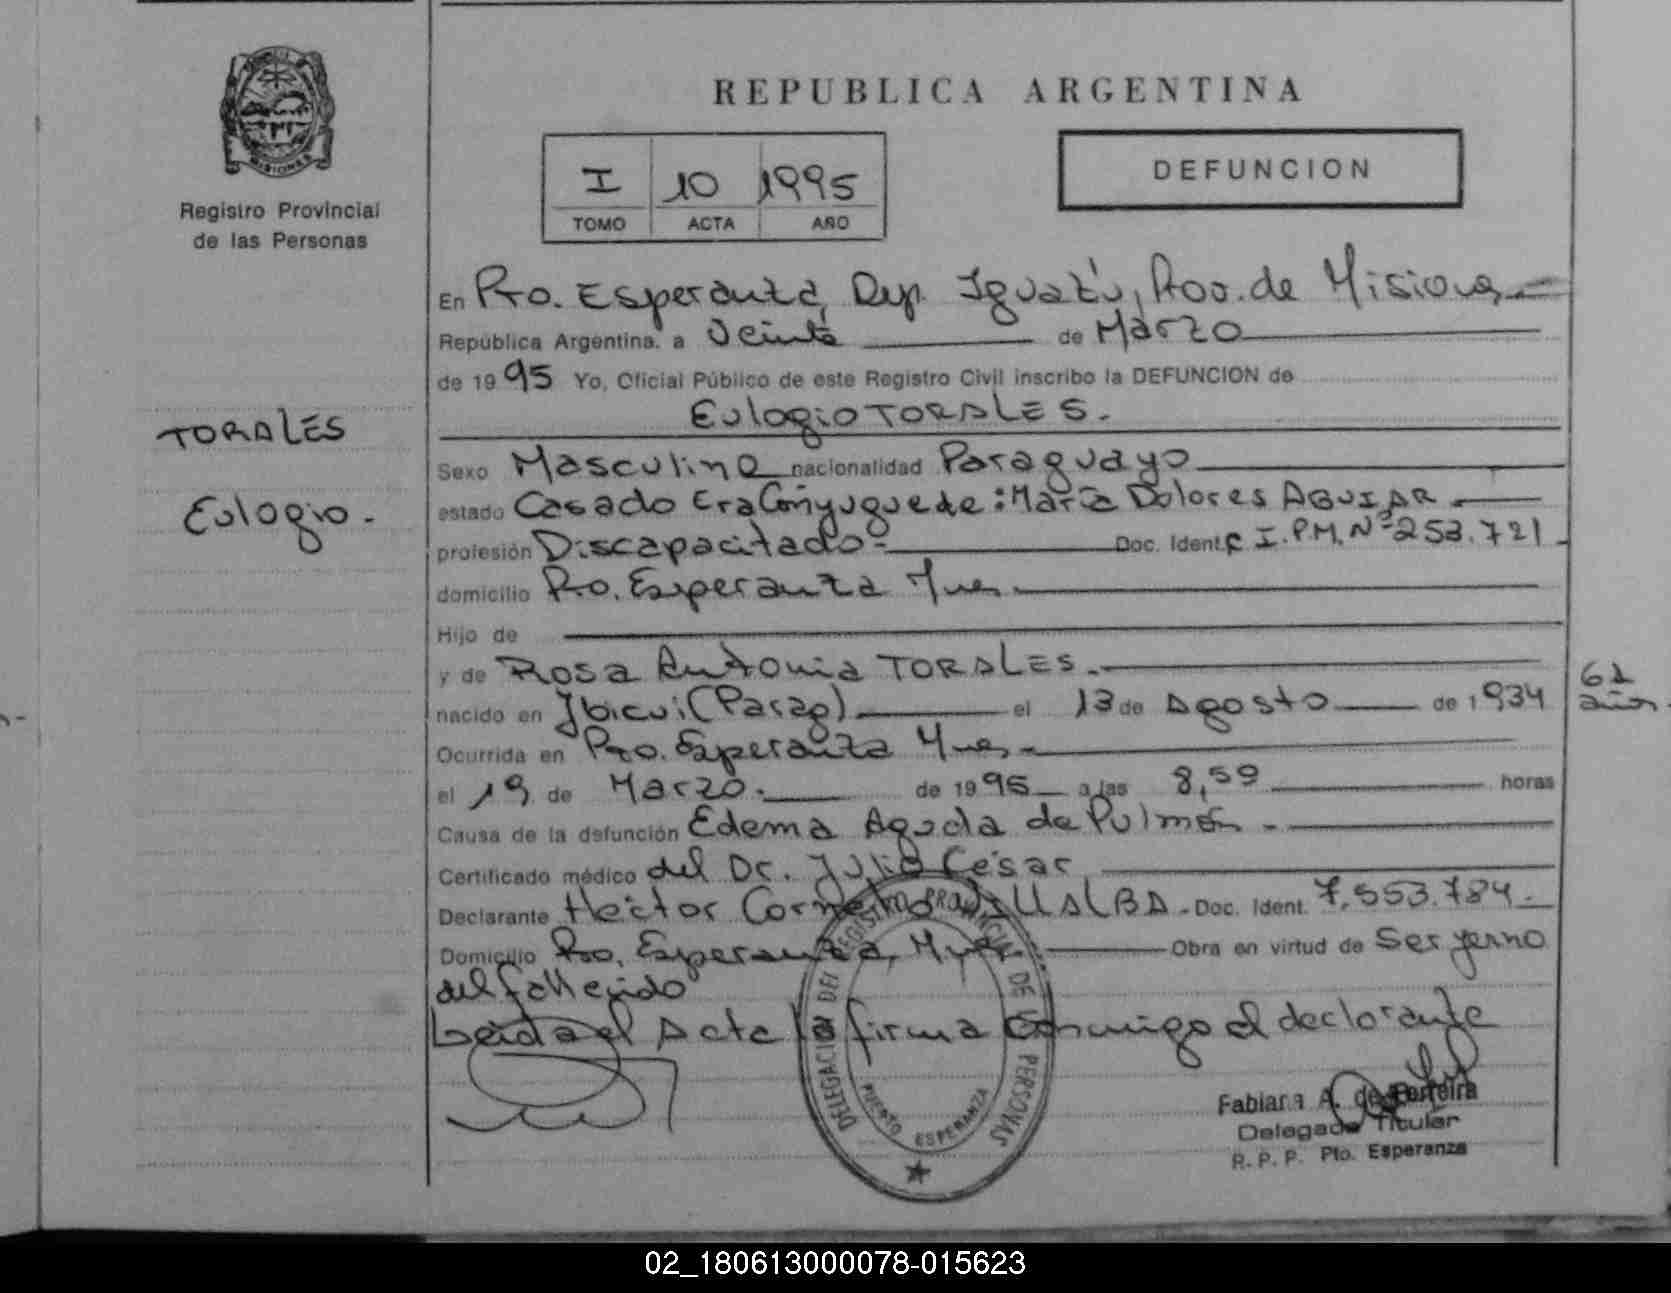 REPUBLICA ARGENTINA
MISIONES
Registro Provincial
de las Personas
I 10 1995
TOMO ACTA AÑO
DEFUNCION
En Pto. Esperanza, Dep. Iguazú, Prov. de Misiones
República Argentina, a Veinte de Marzo
de 1995 Yo, Oficial Público de este Registro Civil inscribo la DEFUNCION de
Eulogio TORALES.
TORALES
Eulogio.
Sexo Masculino nacionalidad Paraguayo
estado Casado Era Cónyugue de: María Dolores AGUIAR
profesión Discapacitado Doc. Ident. C I.P.M. Nº 253.721
domicilio Pto. Esperanza Mnes
Hijo de
y de Rosa Antonia TORALES.
nacido en Ibicui (Parag) el 13 de Agosto de 1934
61
años
Ocurrida en Pto. Esperanza Mnes
el 19 de Marzo. de 1995 a las 8,59 horas
Causa de la defunción Edema Aguda de Pulmón
Certificado médico del Dr. Julio César
Declarante Héctor Cornelio Doc. Ident. 7.553.784.
Domicilio Pto. Esperanza, Mnes Obra en virtud de Ser yerno
del fallecido
Leida el Acta la firma conmigo el declarante
DELEGACION DEL REGISTRO PROVINCIAL DE PERSONAS
PUERTO ESPERANZA
Fabiana A. de Ferreira
Delegada Titular
R. P. P. Pto. Esperanza
02_180613000078-015623